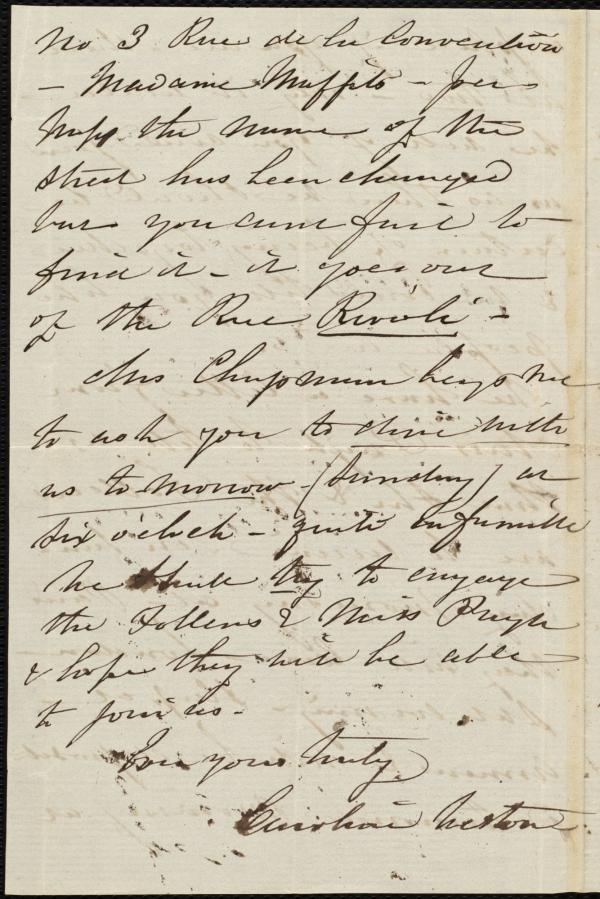 No 3 Rue de la Convention
- Madame Maffit - per
haps the name of the
street has been changed
but you cant fail to
find it - it goes out
of the Rue Rivoli -
Mrs Chapman begs me
to ask you to dine with
us to-morrow - (Sunday) at
six o'clock - quite en famille
we shall try to engage
the Follens & Miss Pugh
& hope they will be able
to join us -
Ever yours truly
Caroline Weston